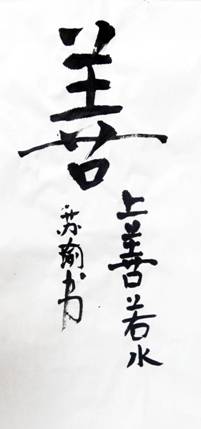 善
上善若水
苏瑜书